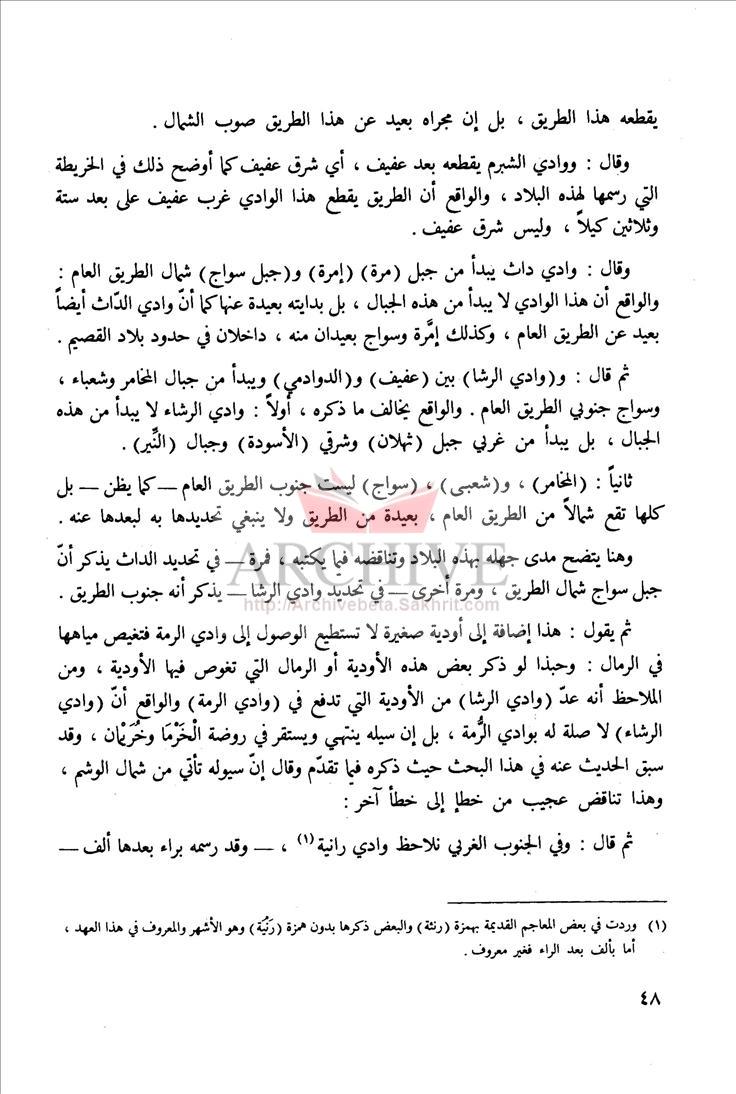 يقطعه هذا الطريق ، بل إن مجراه بعيد عن هذا الطريق صوب الشمال .
وقال : ووادي الشبرم يقطعه بعد عفيف ، أي شرق عفيف كما أوضح ذلك في الخريطة
التي رسمها لهذه البلاد ، والواقع أن الطريق يقطع هذا الوادي غرب عفيف على بعد ستة
وثلاثين كيلاً ، وليس شرق عفيف .
وقال : وادي داث يبدأ من جبل (مرة) (إمرة) و(جبل سواج) شمال الطريق العام :
والواقع أن هذا الوادي لا يبدأ من هذه الجبال ، بل بدايته بعيدة عنها كما أنّ وادي الدّاث أيضاً
بعيد عن الطريق العام ، وكذلك إمَّرة وسواج بعيدان منه ، داخلان في حدود بلاد القصيم .
ثم قال : و(وادي الرشا) بين (عفيف) و(الدوادمي) ويبدأ من جبال المخامر وشعباء ،
وسواج جنوبي الطريق العام . والواقع يخالف ما ذكره ، أولاً : وادي الرشاء لا يبدأ من هذه
الجبال ، بل يبدأ من غربي جبل (ثهلان) وشرقي (الأسودة) وجبال (النِّير) .
ثانياً : (المخامر) ، و(شعبى) ، (سواج) ليست جنوب الطريق العام — كما يظن — بل
كلها تقع شمالاً من الطريق العام ، بعيدة من الطريق ولا ينبغي تحديدها به لبعدها عنه .
وهنا يتضح مدى جهله بهذه البلاد وتناقضه فيما يكتبه ، فمرة — في تحديد الداث يذكر أنّ
جبل سواج شمال الطريق ، ومرة أخرى — في تحديد وادي الرشا — يذكر أنه جنوب الطريق .
ARCHIVE
http://Archivebeta.Sakhrit.com
ثم يقول : هذا إضافة إلى أودية صغيرة لا تستطيع الوصول إلى وادي الرمة فتغيص مياهها
في الرمال : وحبذا لو ذكر بعض هذه الأودية أو الرمال التي تغوص فيها الأودية ، ومن
الملاحظ أنه عدّ (وادي الرشا) من الأودية التي تدفع في (وادي الرمة) والواقع أنّ (وادي
الرشاء) لا صلة له بوادي الرُّمة ، بل إن سيله ينتهي ويستقر في روضة الْخَرْمَا وخُرَيْمان ، وقد
سبق الحديث عنه في هذا البحث حيث ذكره فيما تقدّم وقال إنّ سيوله تأتي من شمال الوشم ،
وهذا تناقض عجيب من خطإ إلى خطأ آخر :
ثم قال : وفي الجنوب الغربي نلاحظ وادي رانية (١) ، — وقد رسمه براء بعدها ألف —
(١) وردت في بعض المعاجم القديمة بهمزة (رنئة) والبعض ذكرها بدون همزة (رَنْيَة) وهو الأشهر والمعروف في هذا العهد ،
أما بألف بعد الراء فغير معروف .
٤٨